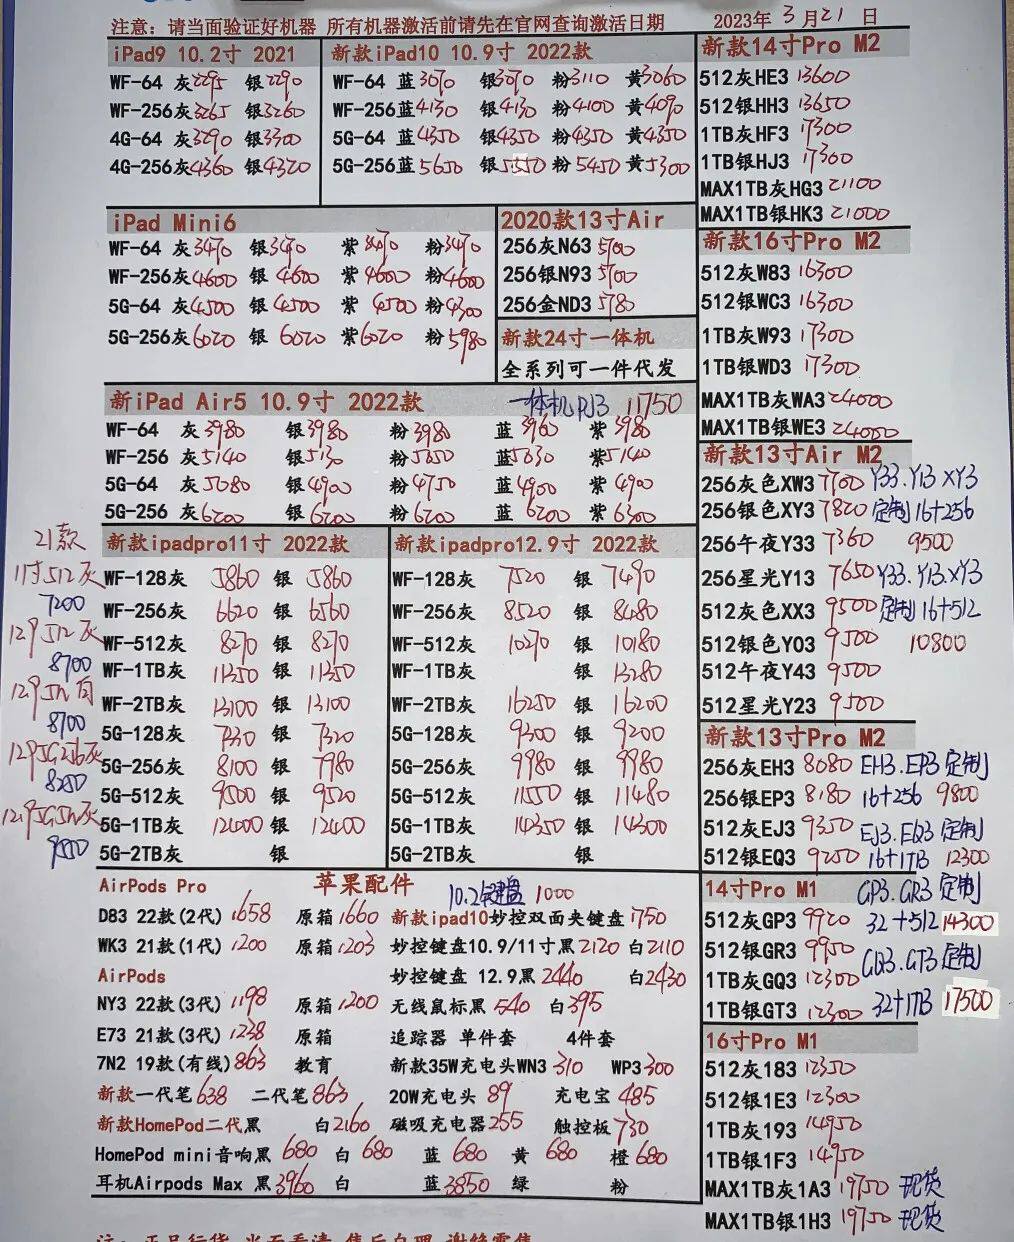 注意：请当面验证好机器 所有机器激活前请先在官网查询激活日期 2023年 3月21日
iPad9 10.2寸 2021
WF-64 灰2295 银2290
WF-256灰3265 银3260
4G-64 灰3290 银3300
4G-256灰4360 银4320
新款iPad10 10.9寸 2022款
WF-64 蓝3070 银3070 粉3110 黄3060
WF-256蓝4130 银4130 粉4100 黄4090
5G-64 蓝4350 银4350 粉4350 黄4350
5G-256蓝5650 银5550 粉5450 黄5300
iPad Mini6
WF-64 灰3470 银3470 紫3470 粉3470
WF-256灰4600 银4600 紫4600 粉4600
5G-64 灰4500 银4500 紫4500 粉4300
5G-256灰6020 银6020 紫6020 粉5980
2020款13寸Air
256灰N63 5700
256银N93 5700
256金ND3 5780
新款24寸一体机
全系列可一件代发
一体机PJ3 11750
新iPad Air5 10.9寸 2022款
WF-64 灰3980 银3980 粉3980 蓝3960 紫3980
WF-256 灰5140 银5130 粉5050 蓝5030 紫5140
5G-64 灰5080 银4900 粉4750 蓝4900 紫4900
5G-256 灰6200 银6200 粉6200 蓝6200 紫6300
21款
11寸512灰
7200
12.9 512灰
8700
12.9 512白
8700
12.9 5G256灰
8250
12.9 5G512灰
9550
新款ipadpro11寸 2022款
WF-128灰 5860 银 5860
WF-256灰 6620 银 6560
WF-512灰 8270 银 8270
WF-1TB灰 11350 银 11350
WF-2TB灰 13100 银 13100
5G-128灰 7330 银 7320
5G-256灰 8100 银 7980
5G-512灰 9500 银 9520
5G-1TB灰 12400 银 12400
5G-2TB灰 银
新款ipadpro12.9寸 2022款
WF-128灰 7520 银 7490
WF-256灰 8520 银 8480
WF-512灰 10270 银 10180
WF-1TB灰 银 13280
WF-2TB灰 16250 银 16200
5G-128灰 9300 银 9200
5G-256灰 9980 银 9980
5G-512灰 11550 银 11480
5G-1TB灰 14350 银 14300
5G-2TB灰 银
苹果配件
10.2键盘 1000
AirPods Pro
D83 22款(2代)1658 原箱1660 新款ipad10妙控双面夹键盘1750
WK3 21款(1代)1200 原箱1203 妙控键盘10.9/11寸黑2120 白2110
AirPods 妙控键盘 12.9黑2440 白2430
NY3 22款(3代)1198 原箱1200 无线鼠标黑540 白395
E73 21款(3代)1238 原箱 追踪器 单件套 4件套
7N2 19款(有线)863 教育 新款35W充电头WN3 310 WP3 300
新款一代笔638 二代笔863 20W充电头 89 充电宝 485
新款HomePod二代黑 白2160 磁吸充电器255 触控板730
HomePod mini音响黑 680 白 680 蓝 680 黄 680 橙680
耳机Airpods Max 黑3960 白 蓝3850 绿 粉
新款14寸Pro M2
512灰HE3 13600
512银HH3 13650
1TB灰HF3 17300
1TB银HJ3 17300
MAX1TB灰HG3 21100
MAX1TB银HK3 21000
新款16寸Pro M2
512灰W83 16300
512银WC3 16300
1TB灰W93 17300
1TB银WD3 17300
MAX1TB灰WA3 24000
MAX1TB银WE3 24000
新款13寸Air M2
256灰色XW3 7700 Y33.Y13 XY3
256银色XY3 7820 定制16+256
256午夜Y33 7360 9500
256星光Y13 7650 Y33.Y13.XY3
512灰色XX3 9500 定制16+512
512银色Y03 9500 10800
512午夜Y43 9500
512星光Y23 9500
新款13寸Pro M2
256灰EH3 8080 EH3.EP3定制
256银EP3 8180 16+256 9800
512灰EJ3 9350 EJ3.EQ3定制
512银EQ3 9250 16+1TB 12300
14寸Pro M1 GP3.GR3定制
512灰GP3 9920 32+512 14300
512银GR3 9950 GQ3.GT3定制
1TB灰GQ3 12300
1TB银GT3 12300 32+1TB 17500
16寸Pro M1
512灰183 12350
512银1E3 12300
1TB灰193 14950
1TB银1F3 14950
MAX1TB灰1A3 19750 现货
MAX1TB银1H3 19750 现货